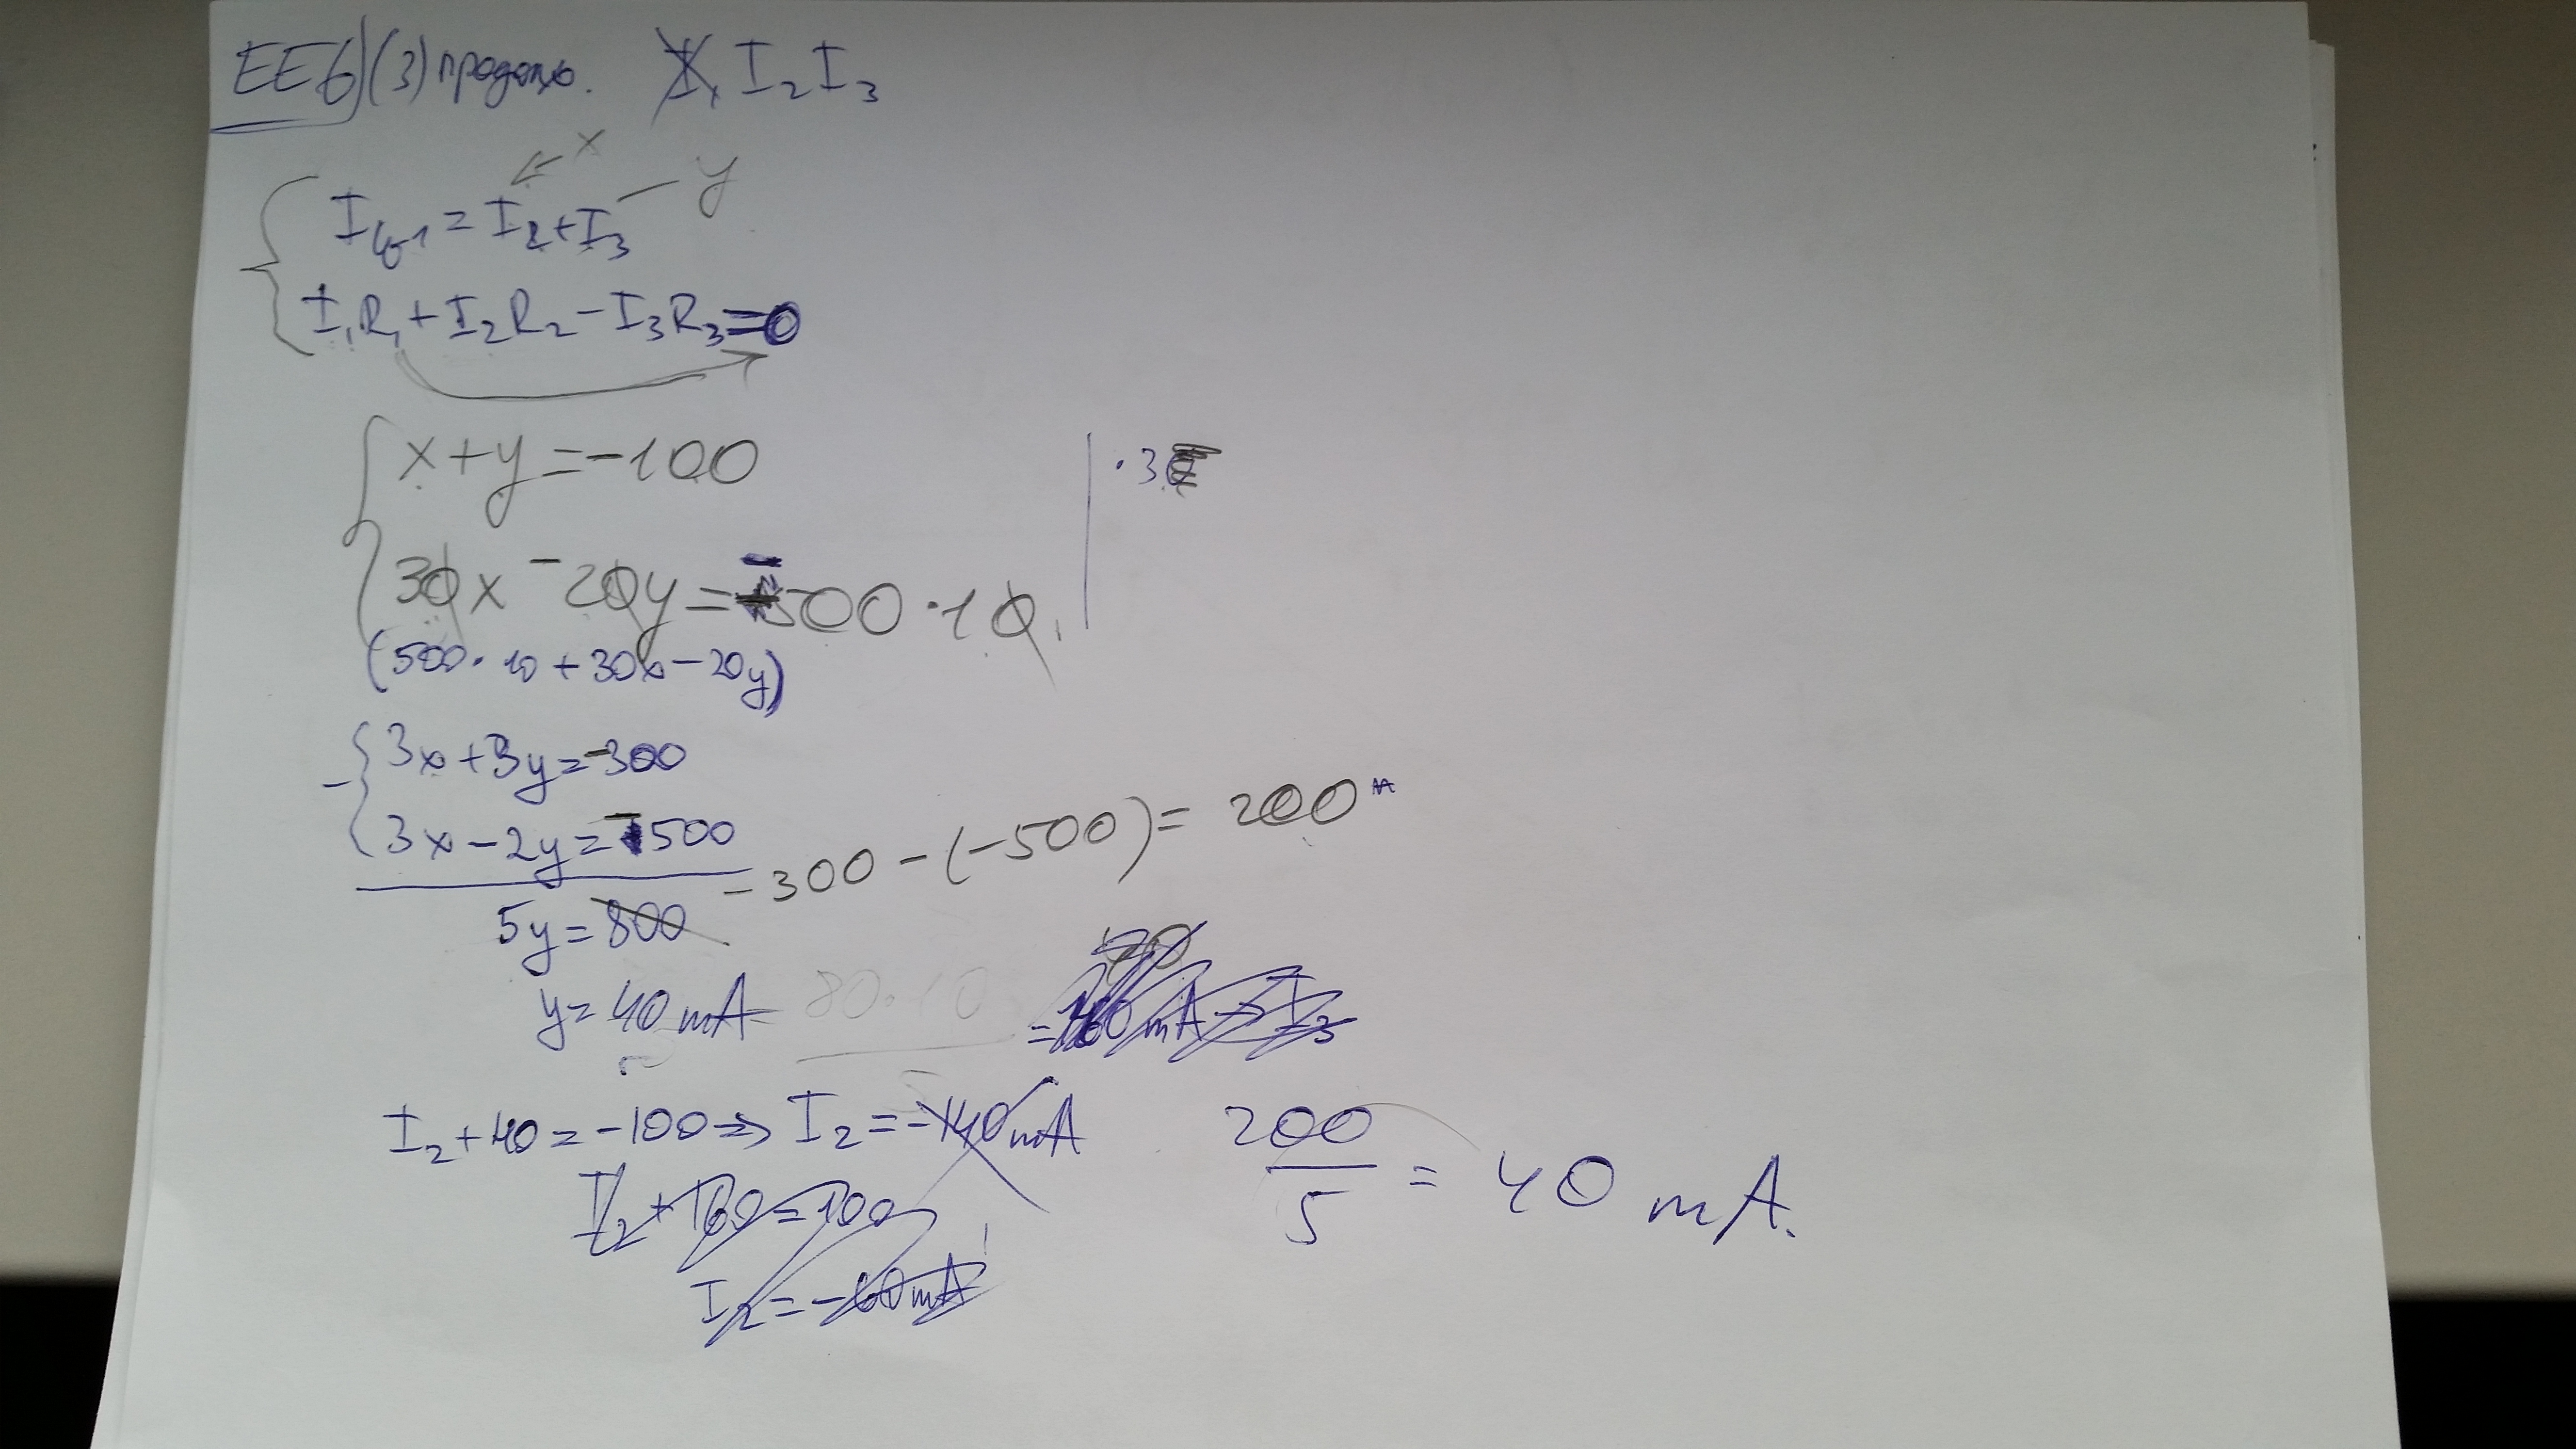 EE6) (3) продолж. I₂ I₃
x
y
I = I₂ + I₃
I₁R₁ + I₂R₂ - I₃R₃ = 0
x + y = -100 | ·3
30x - 20y = -500 · 10
(500 · 10 + 30x - 20y)
3x + 3y = -300
3x - 2y = -500
-300 - (-500) = 200
5y = 800
y = 40 mA 80·10
I₂ + 40 = -100 => I₂ = -140 mA
200/5 = 40 mA.
I₂ + 160 = 100
I₂ = -60 mA